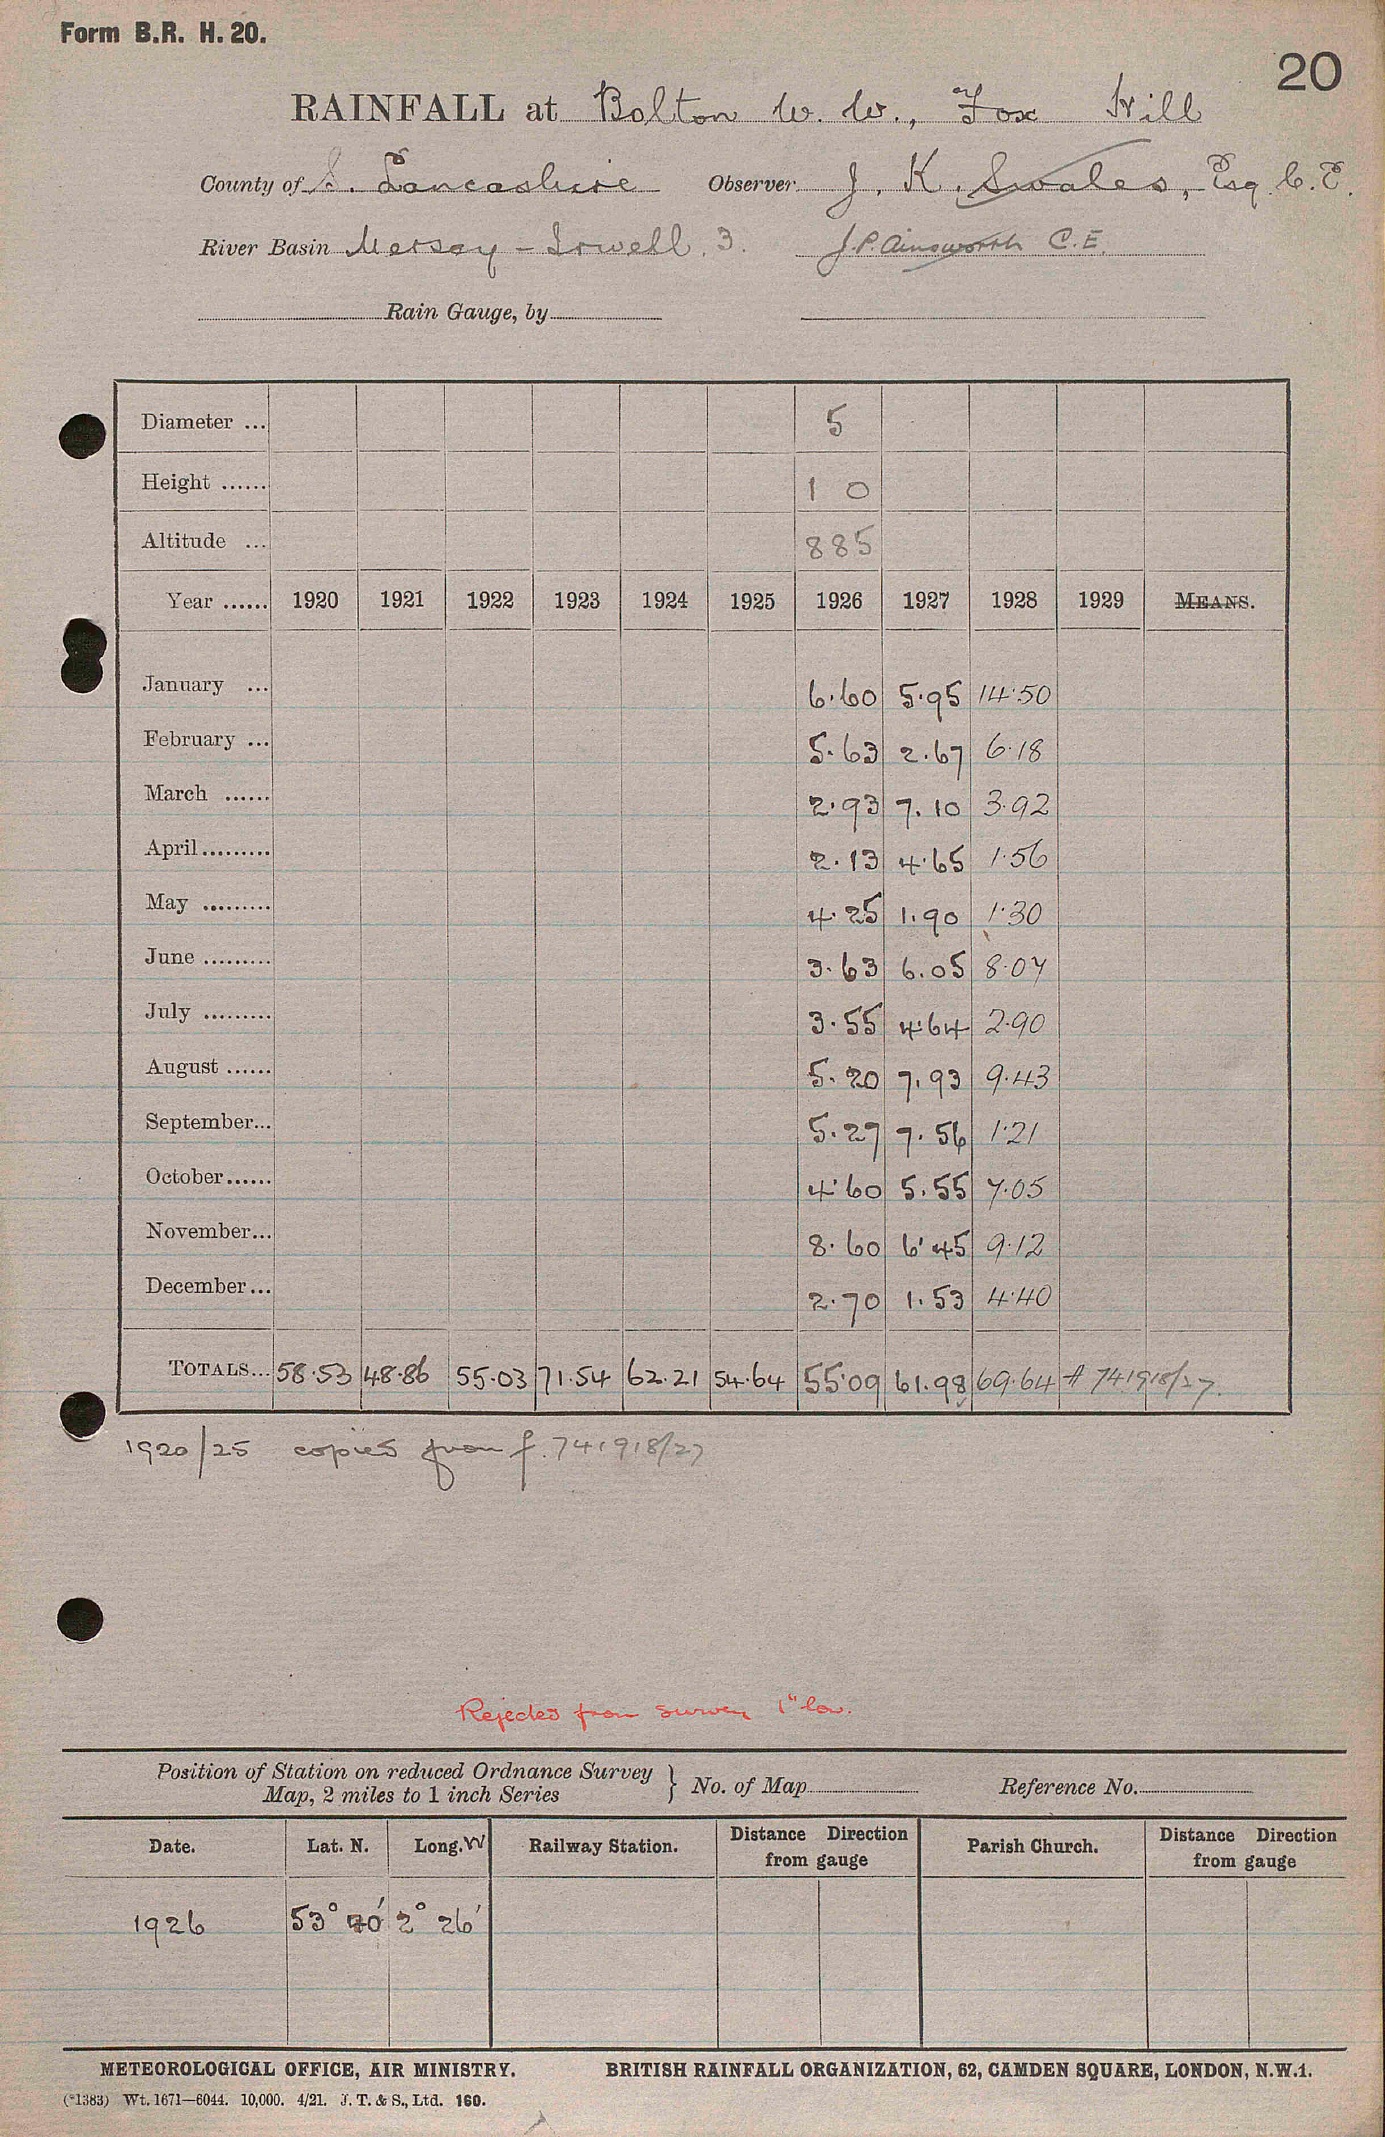 Form B.R. H. 20.
20
RAINFALL at Bolton W. W., Fox Hill
County of S. Lancashire Observer J. K. Swales, Esq. C.E.
River Basin Mersey - Irwell. 3. J.P. Ainsworth C.E.
Rain Gauge, by
Diameter ... 5
Height ...... 1 0
Altitude ... 885
Year ...... 1920 1921 1922 1923 1924 1925 1926 1927 1928 1929 MEANS.
January ... 6.60 5.95 14.50
February ... 5.63 2.67 6.18
March ...... 2.93 7.10 3.92
April ......... 2.13 4.65 1.56
May ......... 4.25 1.90 1.30
June ......... 3.63 6.05 8.07
July ......... 3.55 4.64 2.90
August ...... 5.20 7.93 9.43
September... 5.27 7.56 1.21
October...... 4.60 5.55 7.05
November... 8.60 6.45 9.12
December... 2.70 1.53 4.40
TOTALS... 58.53 48.86 55.03 71.54 62.21 54.64 55.09 61.98 69.64 741918/27.
1920/25 copied from f. 741918/27
Rejected from survey 1" low.
Position of Station on reduced Ordnance Survey
Map, 2 miles to 1 inch Series } No. of Map Reference No.
Date. Lat. N. Long. W Railway Station. Distance Direction from gauge Parish Church. Distance Direction from gauge
1926 53° 40' 2° 26'
METEOROLOGICAL OFFICE, AIR MINISTRY. BRITISH RAINFALL ORGANIZATION, 62, CAMDEN SQUARE, LONDON, N.W.1.
(*1383) Wt. 1671—6044. 10,000. 4/21. J. T. & S., Ltd. 160.